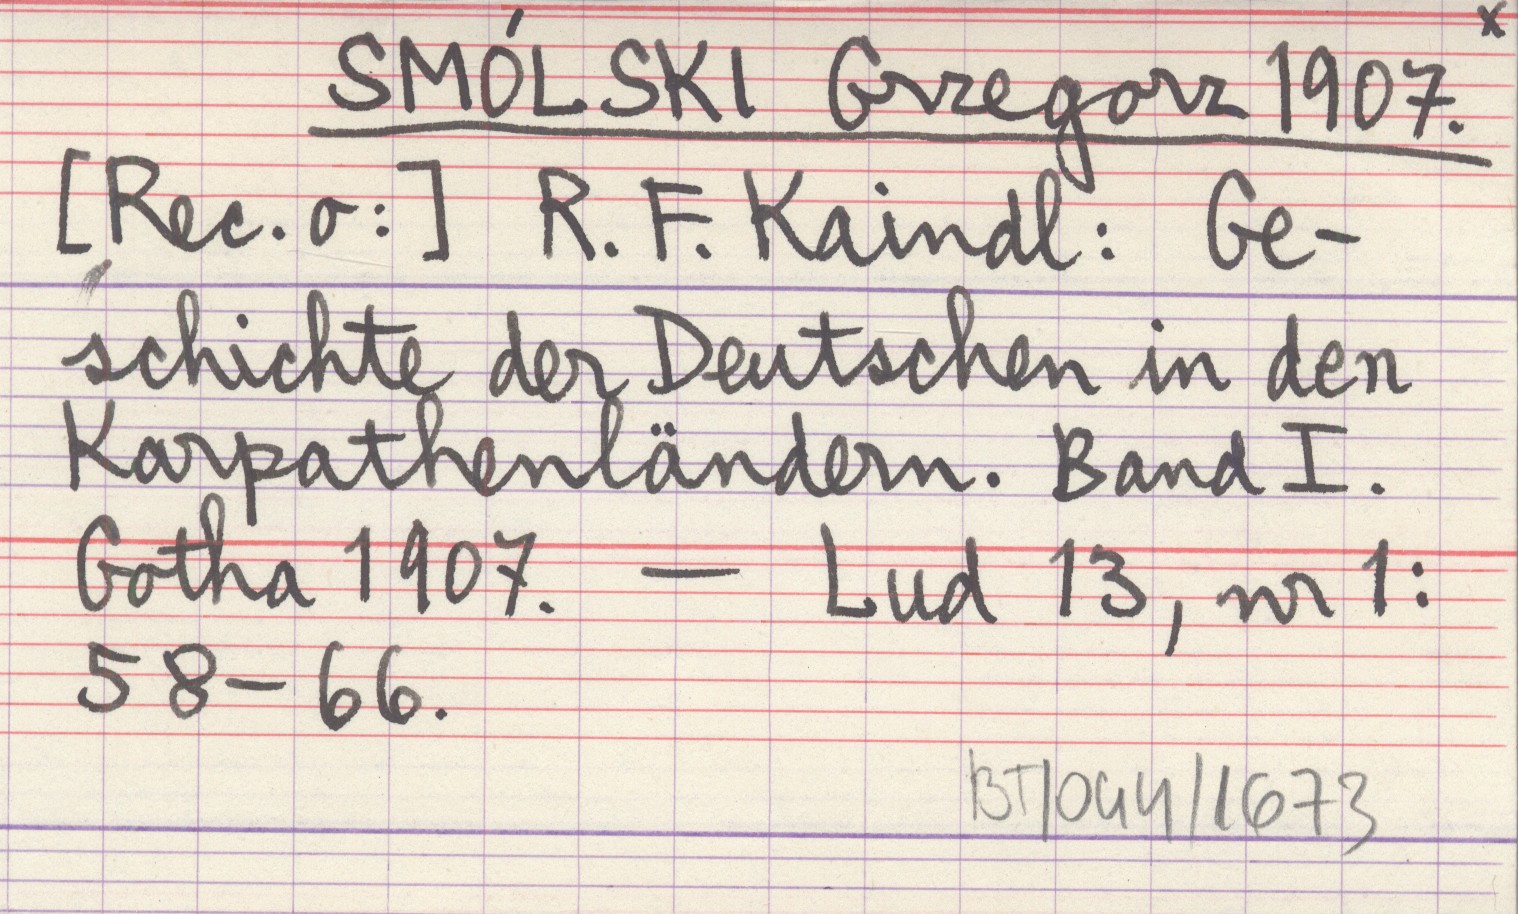 x
SMÓLSKI Grzegorz 1907.
[Rec. o:] R. F. Kaindl: Ge-
schichte der Deutschen in den
Karpathenländern. Band I.
Gotha 1907. — Lud 13, nr 1:
58-66.
BT/044/1673